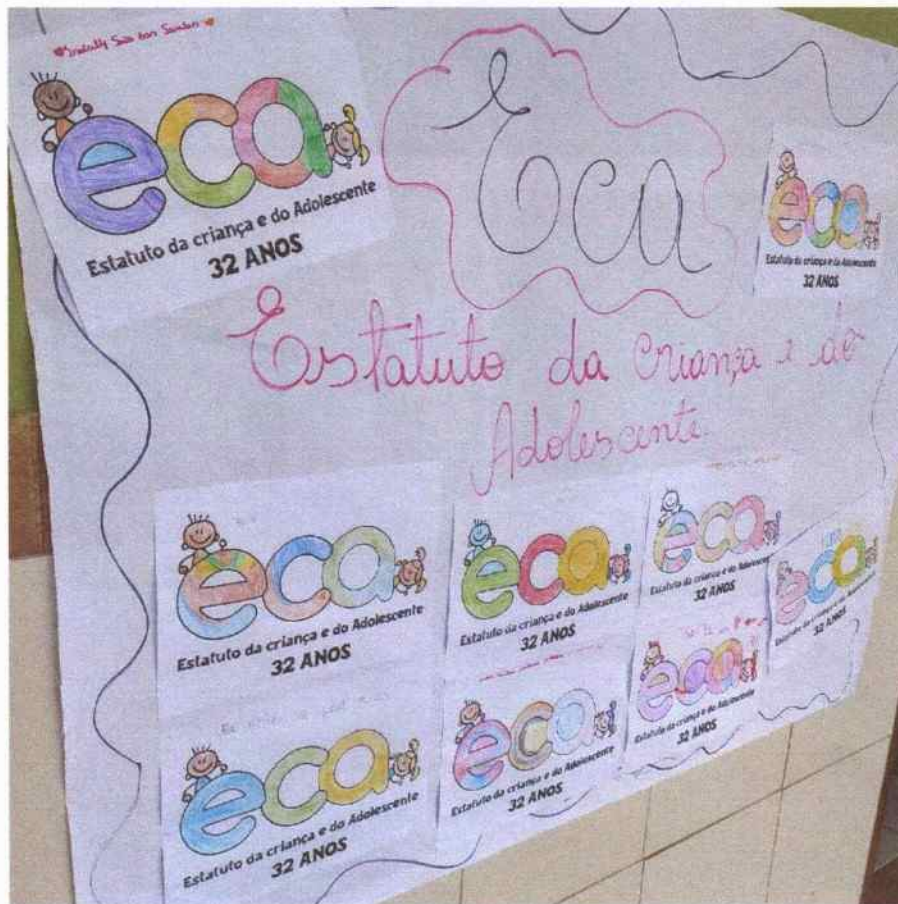 eca
Estatuto da criança e do Adolescente
32 ANOS
Eca
eca
Estatuto da criança e do Adolescente
32 ANOS
Estatuto da Criança e do
Adolescente.
eca
Estatuto da criança e do Adolescente
32 ANOS
eca
Estatuto da criança e do Adolescente
32 ANOS
eca
Estatuto da criança e do Adolescente
32 ANOS
eca
Estatuto da criança e do Adolescente
32 ANOS
eca
Estatuto da criança e do Adolescente
32 ANOS
eca
Estatuto da criança e do Adolescente
32 ANOS
eca
Estatuto da criança e do Adolescente
32 ANOS